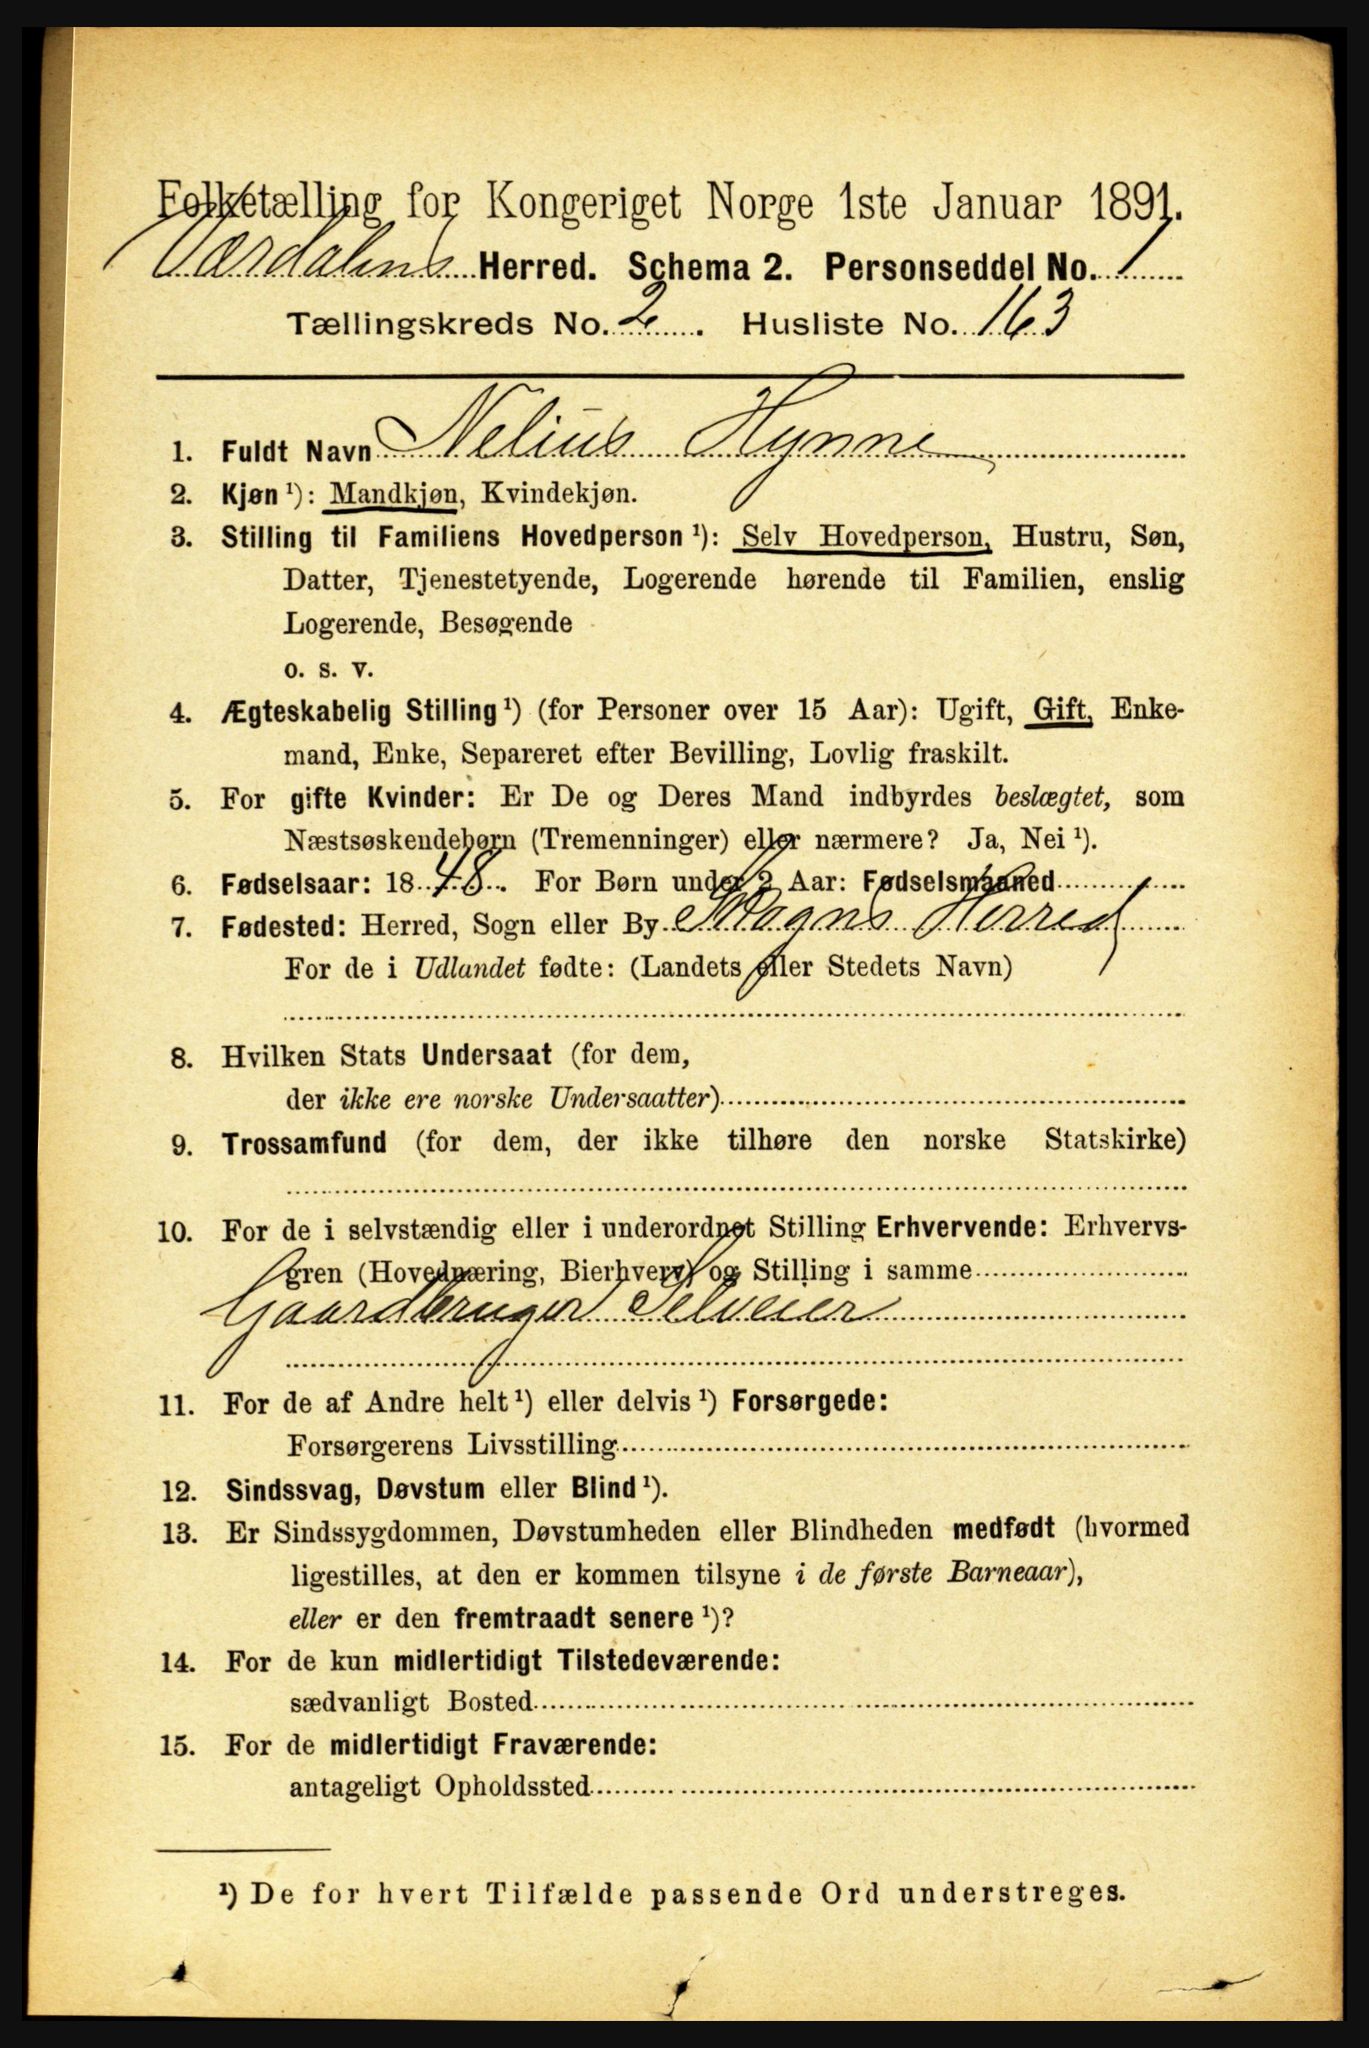 Folketælling for Kongeriget Norge 1ste Januar 1891.
Værdalens Herred. Schema 2. Personseddel No. 1
Tællingskreds No. 2. Husliste No. 163
1. Fuldt Navn Nelius Hynne
2. Kjøn ¹): Mandkjøn, Kvindekjøn.
3. Stilling til Familiens Hovedperson ¹): Selv Hovedperson, Hustru, Søn,
Datter, Tjenestetyende, Logerende hørende til Familien, enslig
Logerende, Besøgende
o. s. v.
4. Ægteskabelig Stilling ¹) (for Personer over 15 Aar): Ugift, Gift, Enke-
mand, Enke, Separeret efter Bevilling, Lovlig fraskilt.
5. For gifte Kvinder: Er De og Deres Mand indbyrdes beslægtet, som
Næstsøskendebørn (Tremenninger) eller nærmere? Ja, Nei ¹).
6. Fødselsaar: 1848. For Børn under 2 Aar: Fødselsmaaned
7. Fødested: Herred, Sogn eller By Skogns Herred
For de i Udlandet fødte: (Landets eller Stedets Navn)
8. Hvilken Stats Undersaat (for dem,
der ikke ere norske Undersaatter)
9. Trossamfund (for dem, der ikke tilhøre den norske Statskirke)
10. For de i selvstændig eller i underordnet Stilling Erhvervende: Erhvervs-
gren (Hovednæring, Bierhverv) og Stilling i samme
Gaardbruger Selveier
11. For de af Andre helt ¹) eller delvis ¹) Forsørgede:
Forsørgerens Livsstilling
12. Sindssvag, Døvstum eller Blind ¹).
13. Er Sindssygdommen, Døvstumheden eller Blindheden medfødt (hvormed
ligestilles, at den er kommen tilsyne i de første Barneaar),
eller er den fremtraadt senere ¹)?
14. For de kun midlertidigt Tilstedeværende:
sædvanligt Bosted
15. For de midlertidigt Fraværende:
antageligt Opholdssted
¹) De for hvert Tilfælde passende Ord understreges.